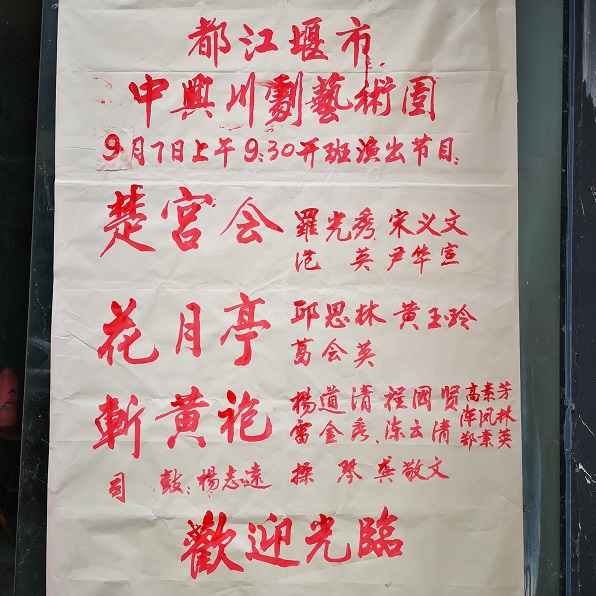 都江堰市
中興川劇藝術團
9月7日上午9:30开班演出节目:
楚宫会 羅光秀 宋义文
范英 尹华宣
花月亭 邱思林 黄玉玲
葛会英
斬黄袍 楊道清 程國贤 高素芳
雷金秀、陈云清 凤林
郑素英
司鼓:楊志遠 操琴 龚敬文
歡迎光臨